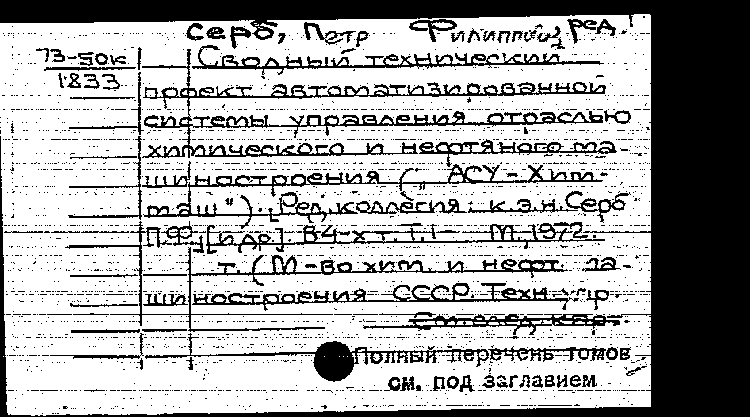 Серб, Петр Филиппович, ред.
73-50к Сводный технический
1833
проект автоматизированной
системы управления отраслью
химического и нефтяного ма-
шиностроения („АСУ-Хим-
маш"). [Ред. коллегия: к.э.н. Серб
П.Ф. [и др.]. В 4-х т. Т.1- М., 1972.
т. (М-во хим. и нефт. ма-
шиностроения СССР. Техн. упр.
См. след. карт.
Полный перечень томов
см. под заглавием